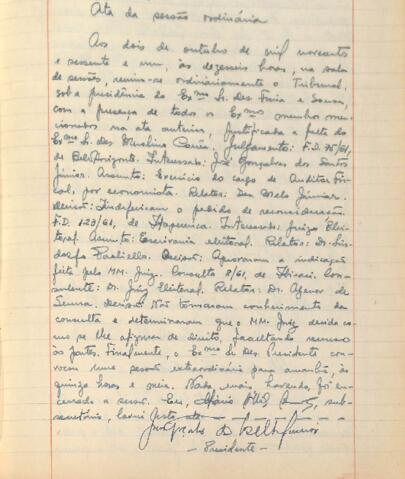 Ata da sessão ordinária
Aos dois de outubro de mil novecentos
e sessenta e um, às dezesseis horas, na sala
de sessões, reuniu-se ordinariamente o Tribunal,
sob a presidência do Exmo Sr. Des. Faria e Sousa,
com a presença de todos os Exmos membros men-
cionados na ata anterior, justificada a falta do
Exmo Sr. Des. Julgamento: F.D. 95/61,
de Belo Horizonte. Interessado: José Gonçalves dos Santos
Júnior. Assunto: Exercício do cargo de Auditor Fis-
cal, por economista. Relator: Des. Melo Júnior.
Decisão: Indeferiram o pedido de reconsideração.
F.D. 123/61, de Itapecerica. Interessado: Juízo Elei-
toral. Assunto: Escrivania eleitoral. Relator: Dr. Lin-
dorfo Paoliello. Decisão: Aprovaram a indicação
feita pelo MM. Juiz. Consulta 8/61, de Con-
sulente: Dr. Juiz Eleitoral. Relator: Dr. Agenor de
Senna. Decisão: Não tomaram conhecimento da
consulta e determinaram que o MM. Juiz decida co-
mo se lhe afigurar de direito, facultando recurso
às partes. Finalmente, o Exmo Sr. Des. Presidente con-
vocou uma sessão extraordinária para amanhã, às
quinze horas e meia. Nada mais havendo, foi en-
cerrada a sessão. Eu, sub-
secretário, lavrei esta ata.
José Gonçalves de Mello Júnior
- Presidente -